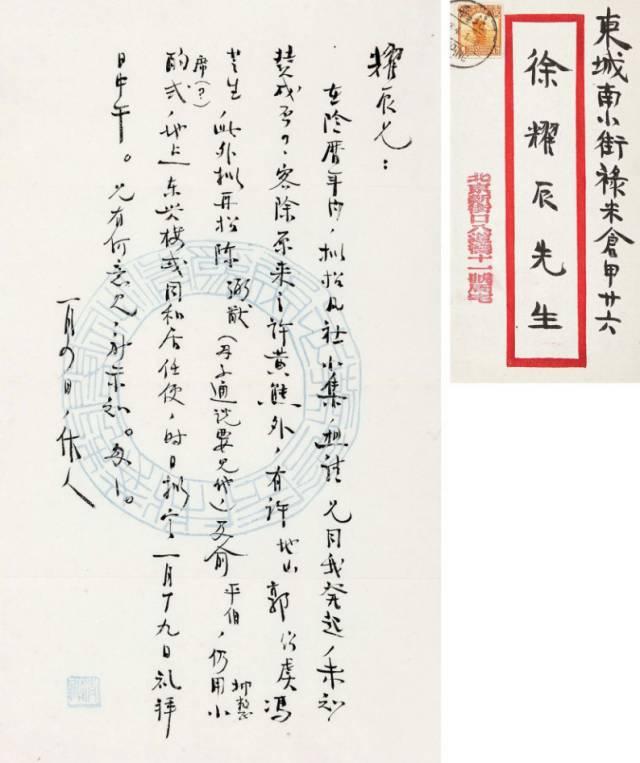 耀辰兄：
在陰曆年内，拟招凡社小集，想請 兄同我発起，未知
賛成否？客除原来之許黄熊外，有許地山 郭 馮
芝生，此外拟再招陈 弼猷（通说要兄代）及俞平伯，仍用小
抑整
席(?)
酌式，地点东兴楼或同和居任便，时日拟定一月十九日礼拜
日中午。兄有何意见，祈示知。匆匆。
一月四日，作人
東城南小街禄米倉甲廿六
徐耀辰先生
北京新街口八道灣十一號周宅